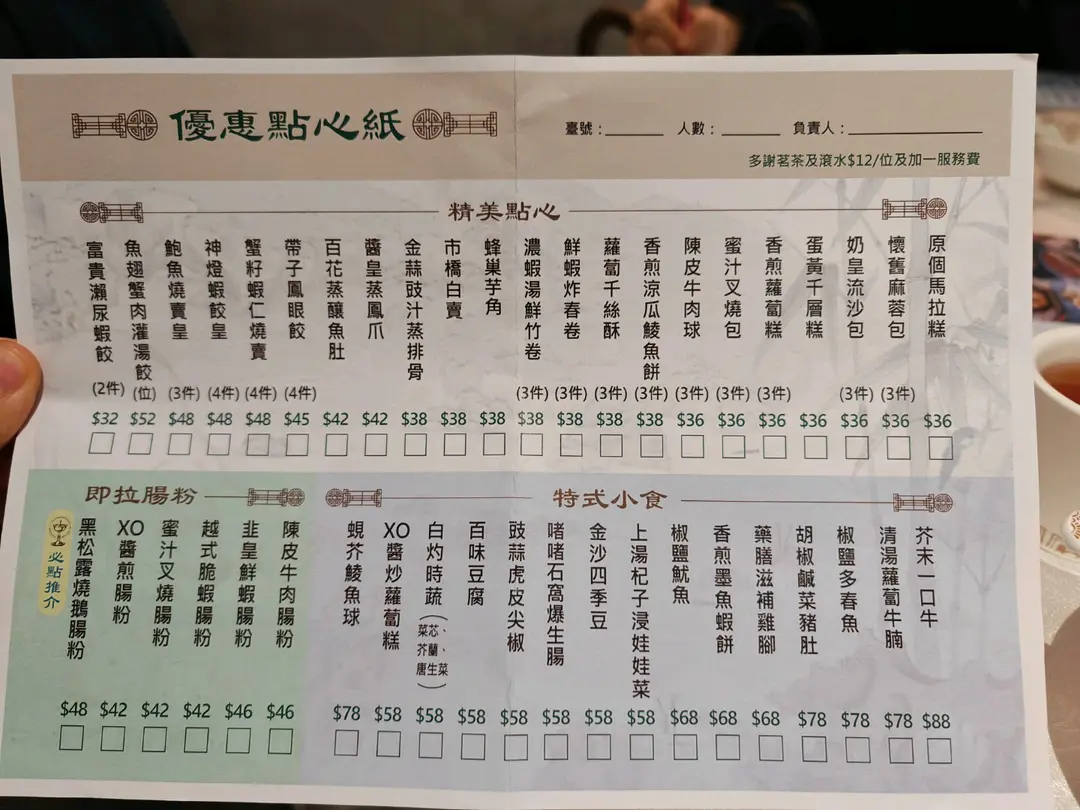 優惠點心紙
臺號：
人數：
負責人：
多謝茗茶及滾水$12/位及加一服務費
精美點心
原個馬拉糕 $36
懷舊麻蓉包 (3件) $36
奶皇流沙包 (3件) $36
蛋黃千層糕 $36
香煎蘿蔔糕 (3件) $36
蜜汁叉燒包 (3件) $36
陳皮牛肉球 (3件) $36
香煎涼瓜鯪魚餅 (3件) $38
蘿蔔千絲酥 (3件) $38
鮮蝦炸春卷 (3件) $38
濃蝦湯鮮竹卷 (3件) $38
蜂巢芋角 $38
市橋白賣 $38
金蒜豉汁蒸排骨 $38
醬皇蒸鳳爪 $42
百花蒸釀魚肚 $42
帶子鳳眼餃 (4件) $45
蟹籽蝦仁燒賣 (4件) $48
神燈蝦餃皇 (4件) $48
鮑魚燒賣皇 (3件) $48
魚翅蟹肉灌湯餃 (位) $52
富貴瀨尿蝦餃 (2件) $32
特式小食
芥末一口牛 $88
清湯蘿蔔牛腩 $78
椒鹽多春魚 $78
胡椒鹹菜豬肚 $78
藥膳滋補雞腳 $68
香煎墨魚蝦餅 $68
椒鹽魷魚 $68
上湯杞子浸娃娃菜 $58
金沙四季豆 $58
啫啫石窩爆生腸 $58
豉蒜虎皮尖椒 $58
百味豆腐 $58
白灼時蔬（菜芯、芥蘭、唐生菜） $58
XO醬炒蘿蔔糕 $58
蜆芥鯪魚球 $78
即拉腸粉
陳皮牛肉腸粉 $46
韭皇鮮蝦腸粉 $46
越式脆蝦腸粉 $42
蜜汁叉燒腸粉 $42
XO醬煎腸粉 $42
黑松露燒鵝腸粉 $48
必點推介